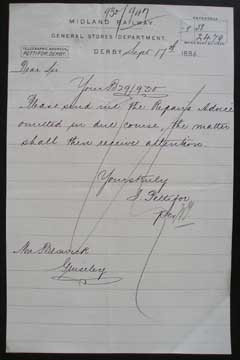 932/947
MIDLAND RAILWAY.
GENERAL STORES DEPARTMENT,
DERBY Sept 17th 1886
TELEGRAPHIC ADDRESS,
PETTIFOR, DERBY.
REFERENCE
28
2470
Dear Sir
Your B29/930
Please send me the Repairs Advice
omitted in due course, the matter
shall then receive attention.
Yours truly
S. Pettifor
Mr
Guiseley